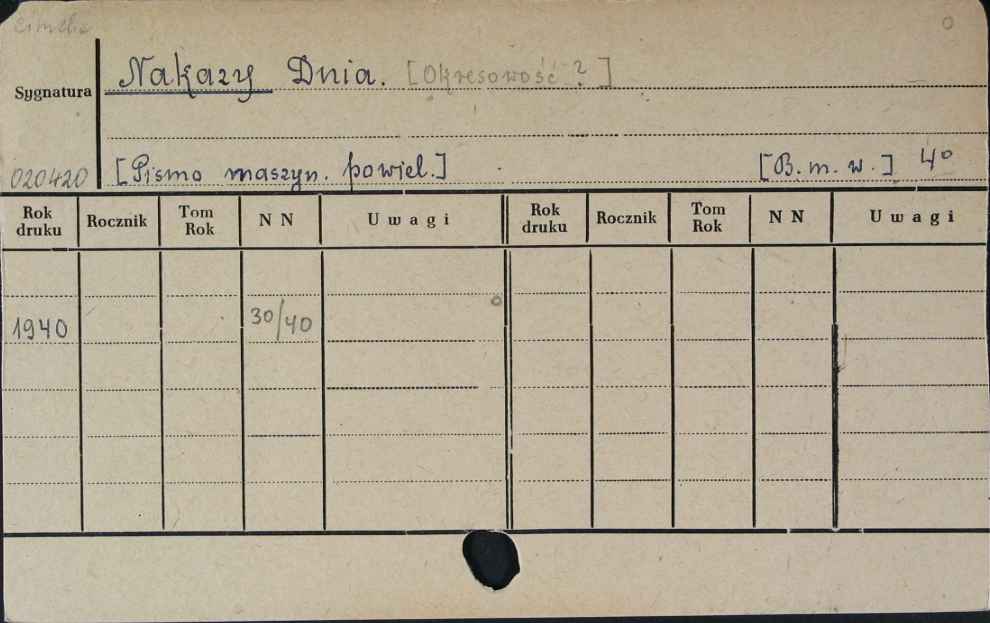 Cimelia
Nakazy Dnia. [Okresowość?]
Sygnatura
020420 [Pismo maszyn. powiel.] [B. m. w.] 4°
Rok druku Rocznik Tom Rok N N Uwagi Rok druku Rocznik Tom Rok N N Uwagi
1940 30/40